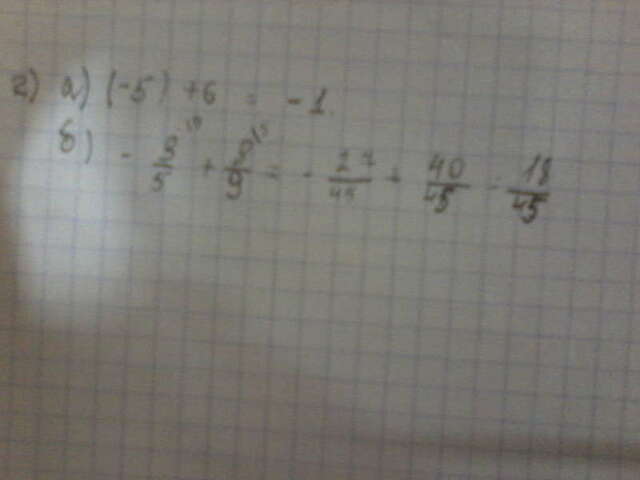 2) а) (-5) +6 = -1.
б) - 3/5 + 8/9 = - 27/45 + 40/45 = 18/45